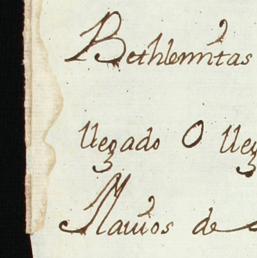 Bethlemitas
llegado O lleg
Navios de